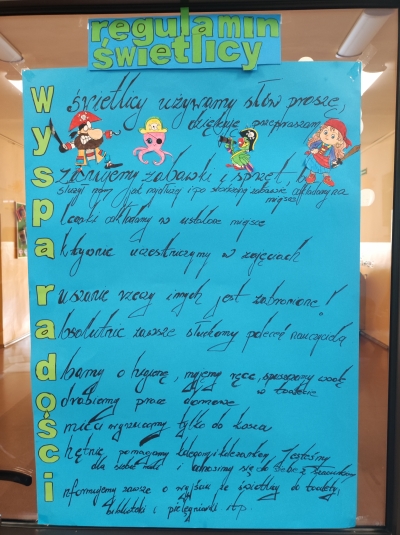 regulamin
świetlicy
w świetlicy używamy słów proszę,
dziękuję, przepraszam
y
s zanujemy zabawki i sprzęt, by
służyły nam jak najdłużej i po skończonej zabawie odkładamy na
miejsce
p lecaki odkładamy w ustalone miejsce
a ktywnie uczestniczymy w zajęciach
r uszanie rzeczy innych jest zabronione!
a bsolutnie zawsze słuchamy poleceń nauczyciela
d bamy o higienę, myjemy ręce, spuszczamy wodę
w toalecie
o drabiamy prace domowe
ś mieci wyrzucamy tylko do kosza
c hętnie pomagamy kolegom i koleżankom. Jesteśmy
dla siebie mili i odnosimy się do siebie z szacunkiem
i nformujemy zawsze o wyjściu ze świetlicy do toalety,
biblioteki i pielęgniarki itp.